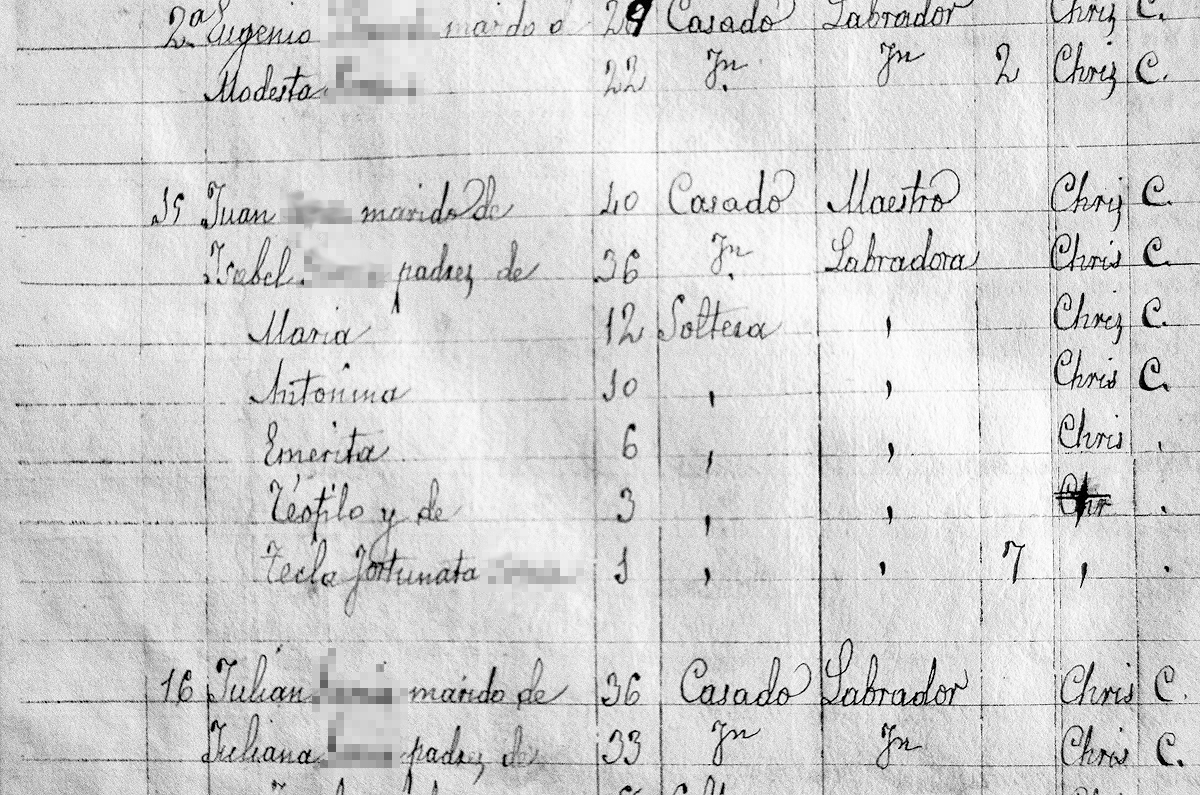 2ª Eugenio marido d 29 Casado Labrador Chriz C.
Modesta 22 Jn. Jn 2 Chriz C.
15 Juan marido de 40 Casado Maestro Chriz C.
Isabel padrez de 36 Jn. Labradora Chris C.
Maria 12 Soltera , Chriz C.
Antonina 10 , , Chris C.
Emerita 6 , , Chris .
Teófilo y de 3 , , Chr .
Tecla Fortunata 1 , , 7 , .
16 Julián marido de 36 Casado Labrador Chris C.
Juliana padrez de 33 Jn Jn Chris C.